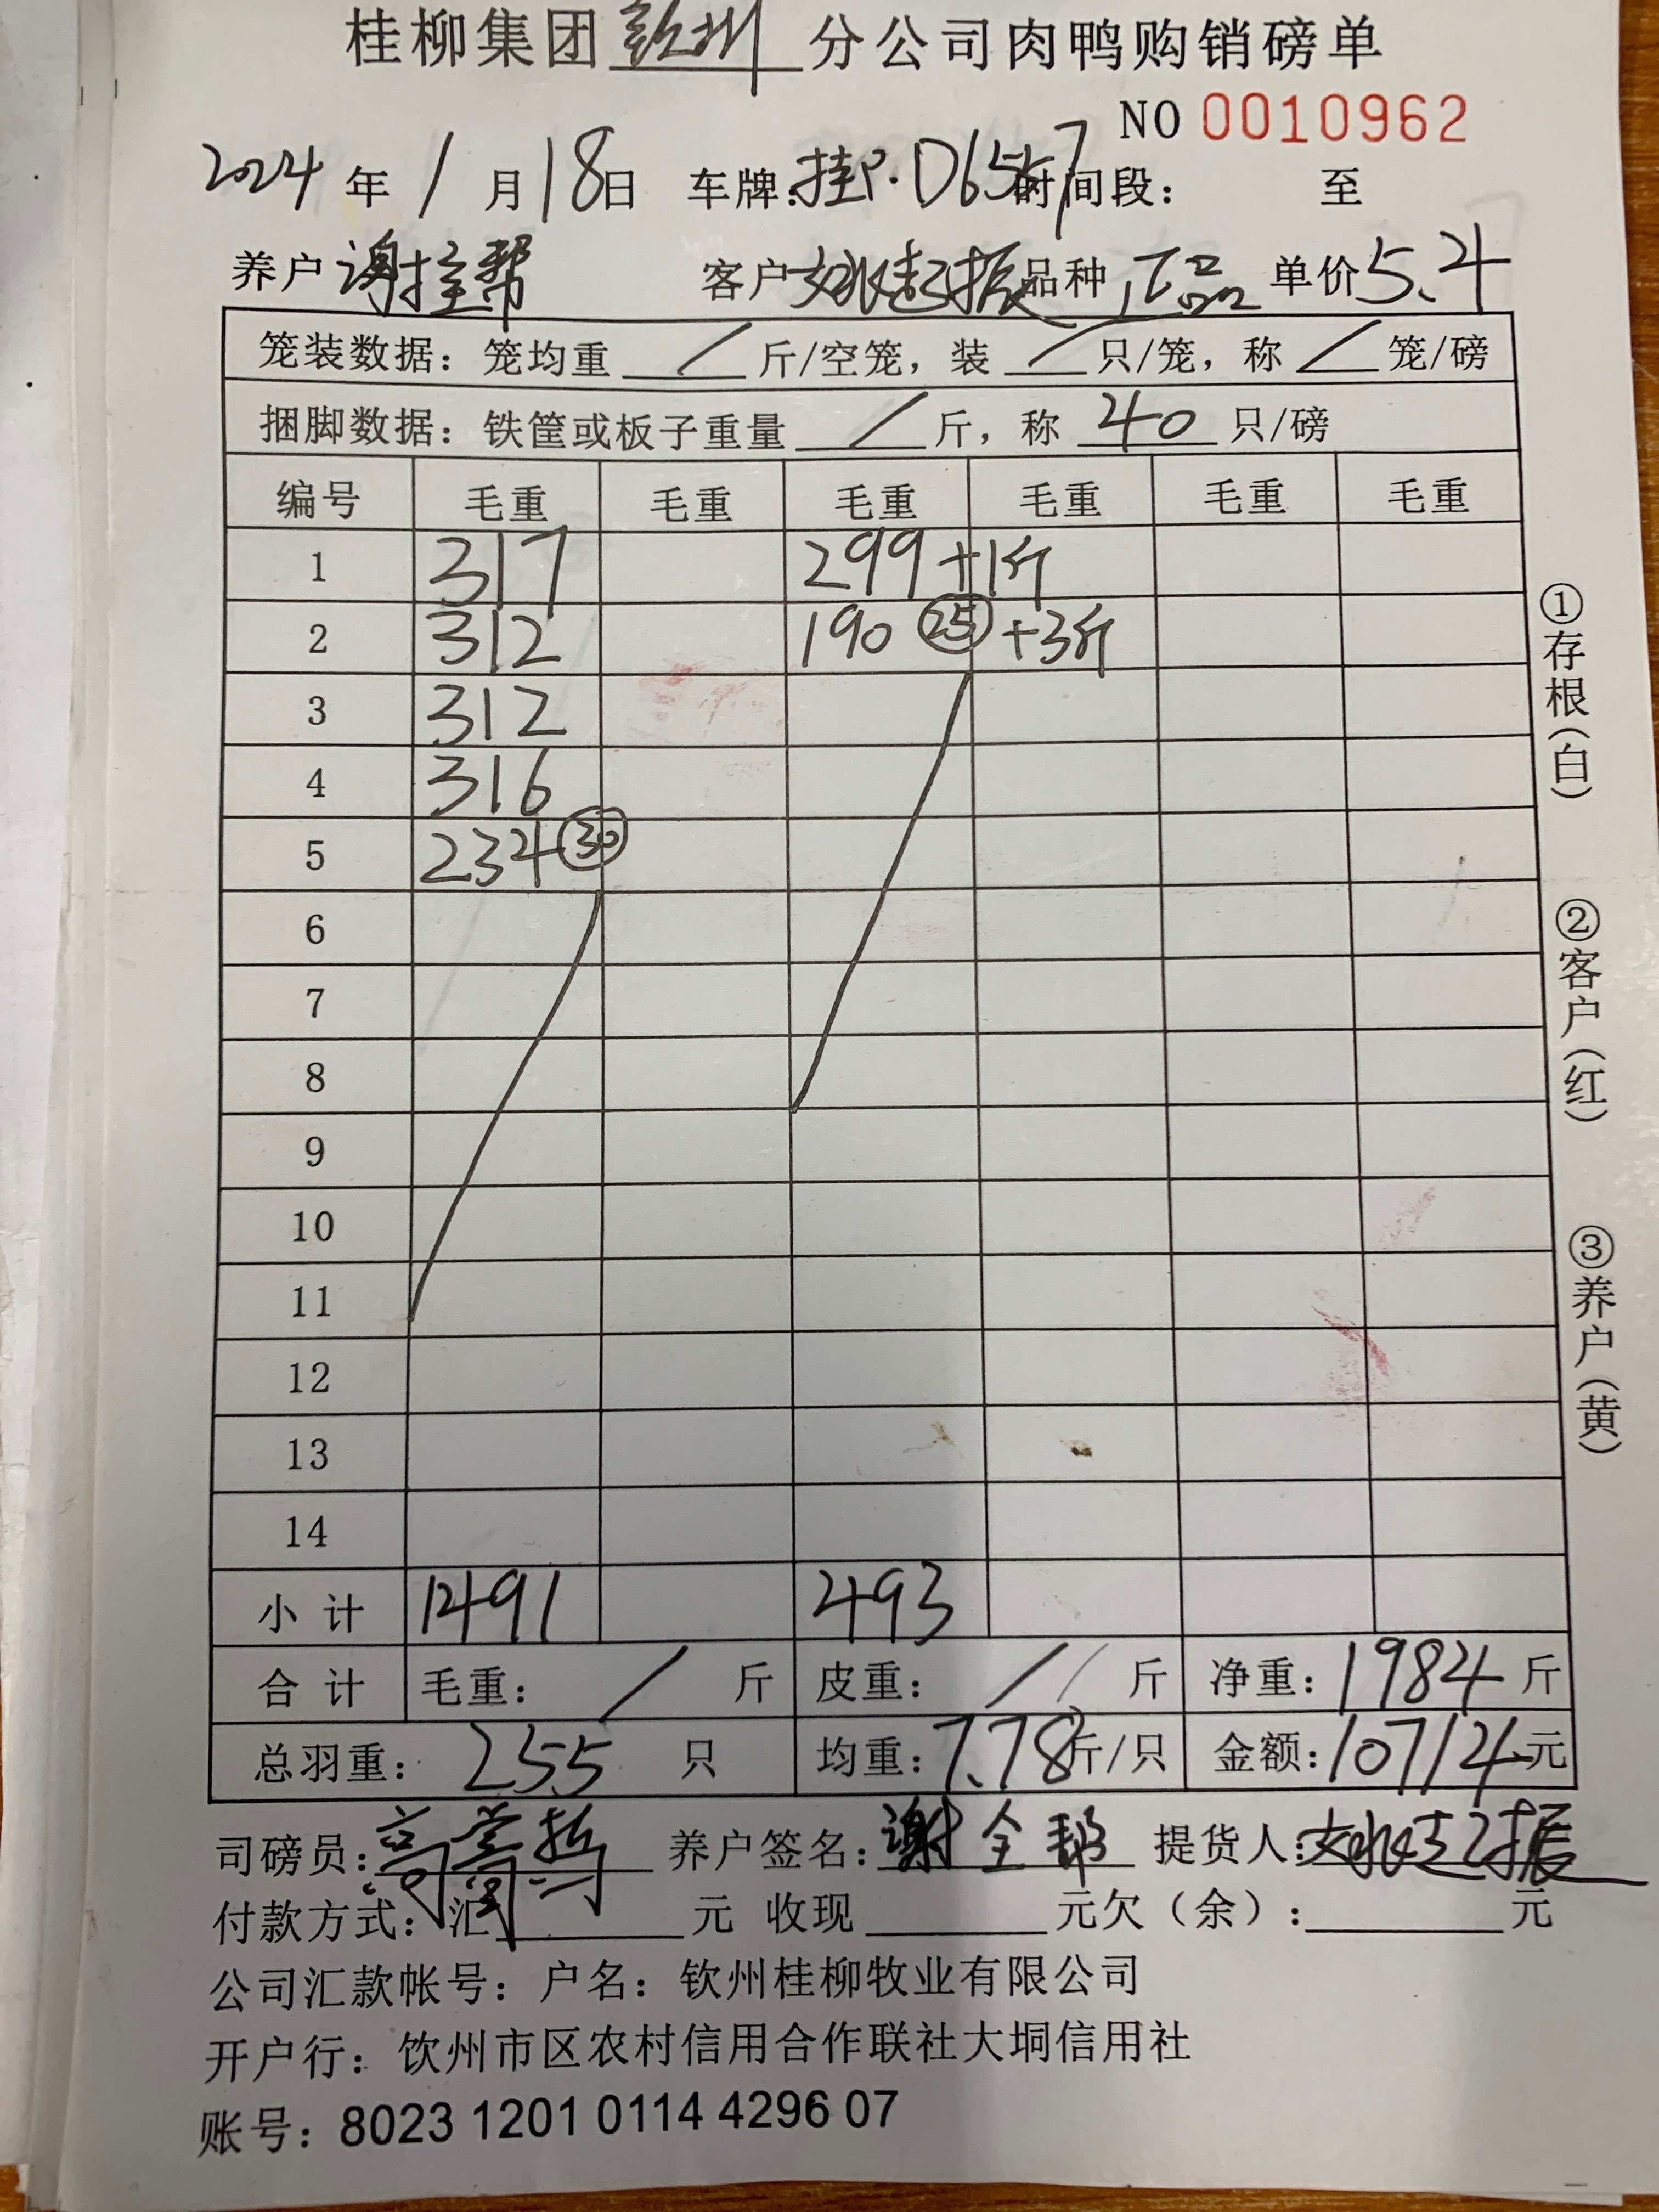 桂柳集团钦州分公司肉鸭购销磅单
NO 0010962
2024年1月18日 车牌:桂P·D6557 时间段: 至
养户 谢全帮 客户 姚赶振 品种 正品 单价5.4
笼装数据: 笼均重 / 斤/空笼, 装 / 只/笼, 称 / 笼/磅
捆脚数据: 铁筐或板子重量 / 斤, 称 40 只/磅
编号 毛重 毛重 毛重 毛重 毛重 毛重
1 317 299 +1斤
2 312 190 25 +3斤
3 312
4 316
5 234 30
6
7
8
9
10
11
12
13
14
小计 1491 493
合计 毛重: / 斤 皮重: / 斤 净重: 1984 斤
总羽重: 255 只 均重: 7.78 斤/只 金额: 10714元
司磅员: 养户签名: 谢全帮 提货人: 姚赶振
付款方式: 汇 元 收现 元欠(余): 元
公司汇款帐号: 户名: 钦州桂柳牧业有限公司
开户行: 饮州市区农村信用合作联社大垌信用社
账号: 8023 1201 0114 4296 07
①存根(白)
②客户(红)
③养户(黄)